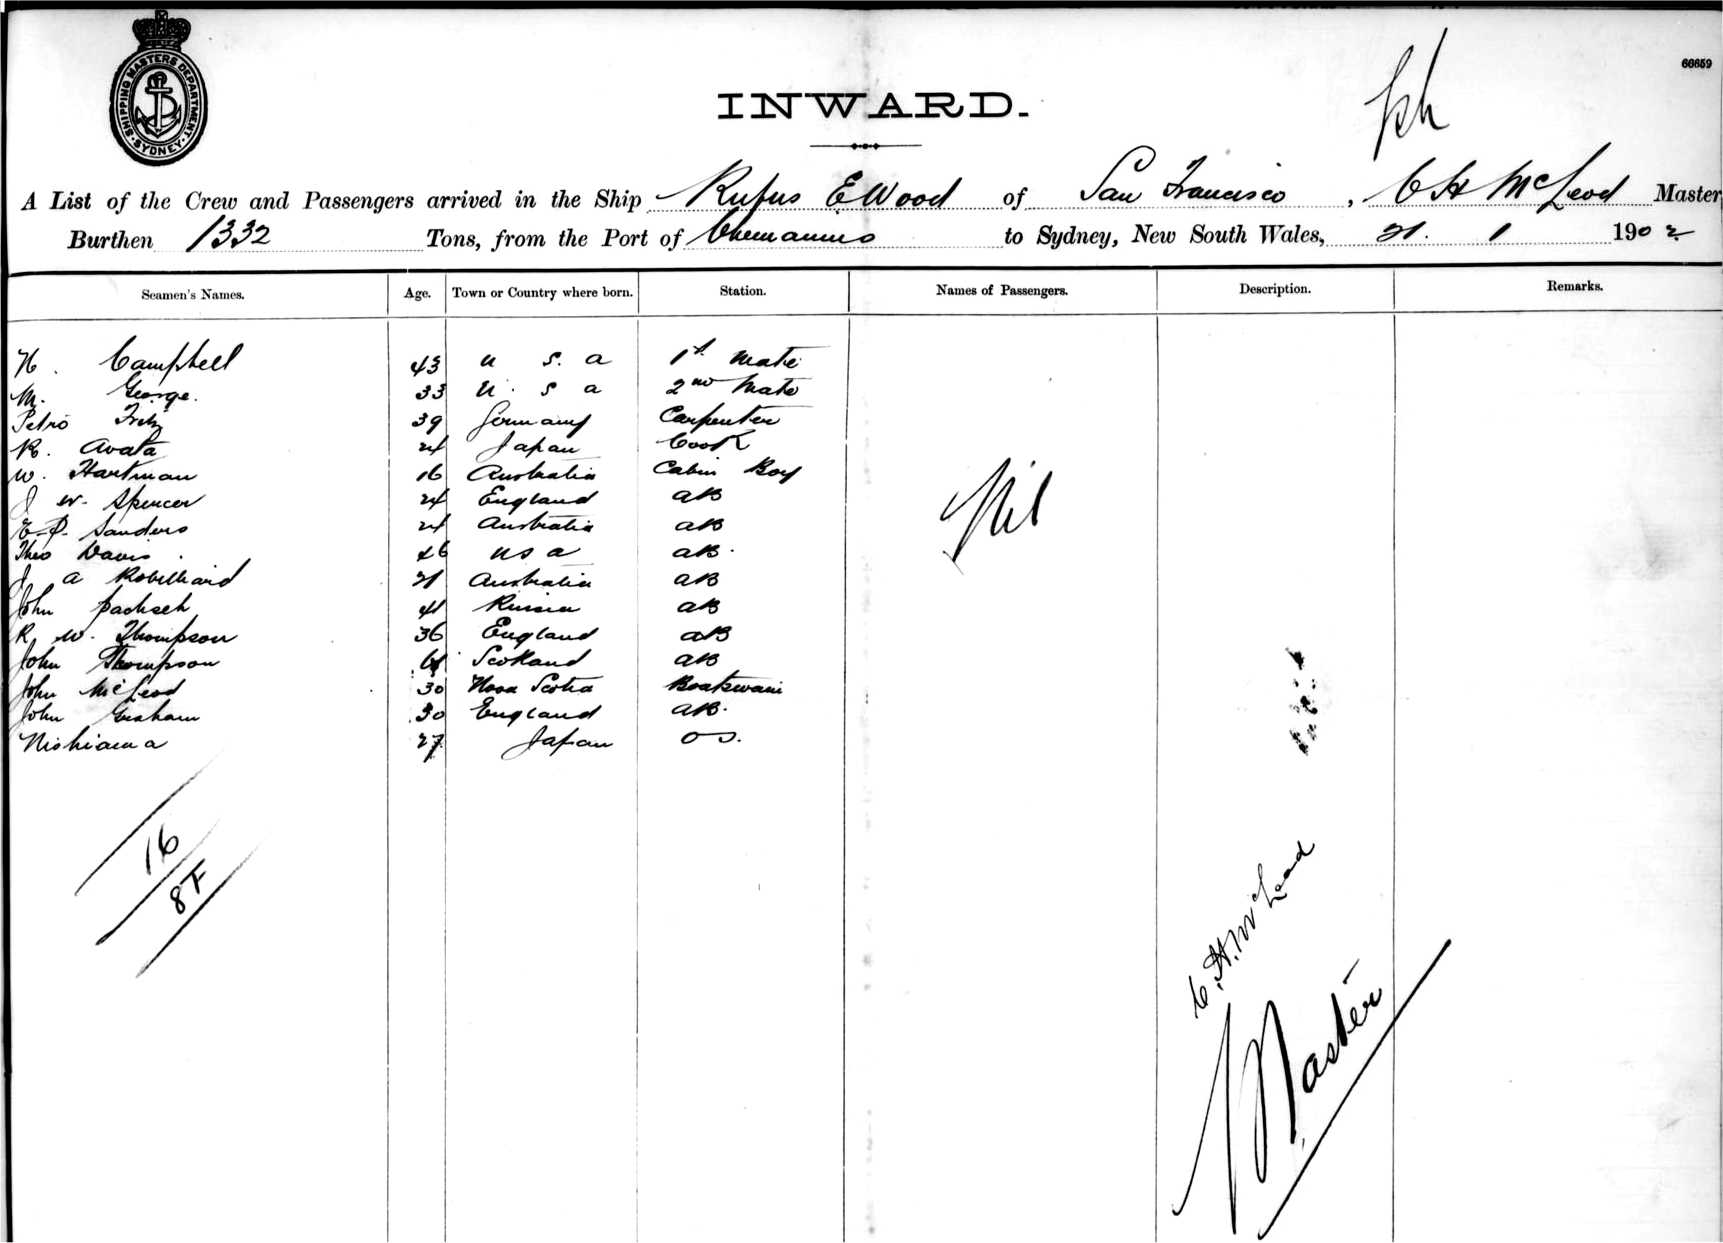 SHIPPING MASTERS DEPARTMENT. SYDNEY.
66659
INWARD.
A List of the Crew and Passengers arrived in the Ship Rufus E. Wood of San Francisco, C H McLeod Master
Burthen 1332 Tons, from the Port of Chemainus to Sydney, New South Wales, 21. 1 1902
Seamen's Names. Age. Town or Country where born. Station. Names of Passengers. Description. Remarks.
H. Campbell 43 U S. A 1st Mate
M. George. 33 U. S A 2nd Mate
Petro Fritz 39 Germany Carpenter
K. Avata 24 Japan Cook
W. Hartman 16 Australia Cabin Boy
J W. Spencer 24 England AB
E. P. Sanders 24 Australia AB
Theo Davis 26 U S A AB.
J A Robilliard 21 Australia AB
John 41 Russia AB
R W. Thompson 36 England AB
John Thompson Scotland AB
John McLeod 30 Nova Scotia Boatswain
John Graham 30 England AB.
Nishiama 27 Japan OS.
Nil
16
8F
C. H. McLeod
Master